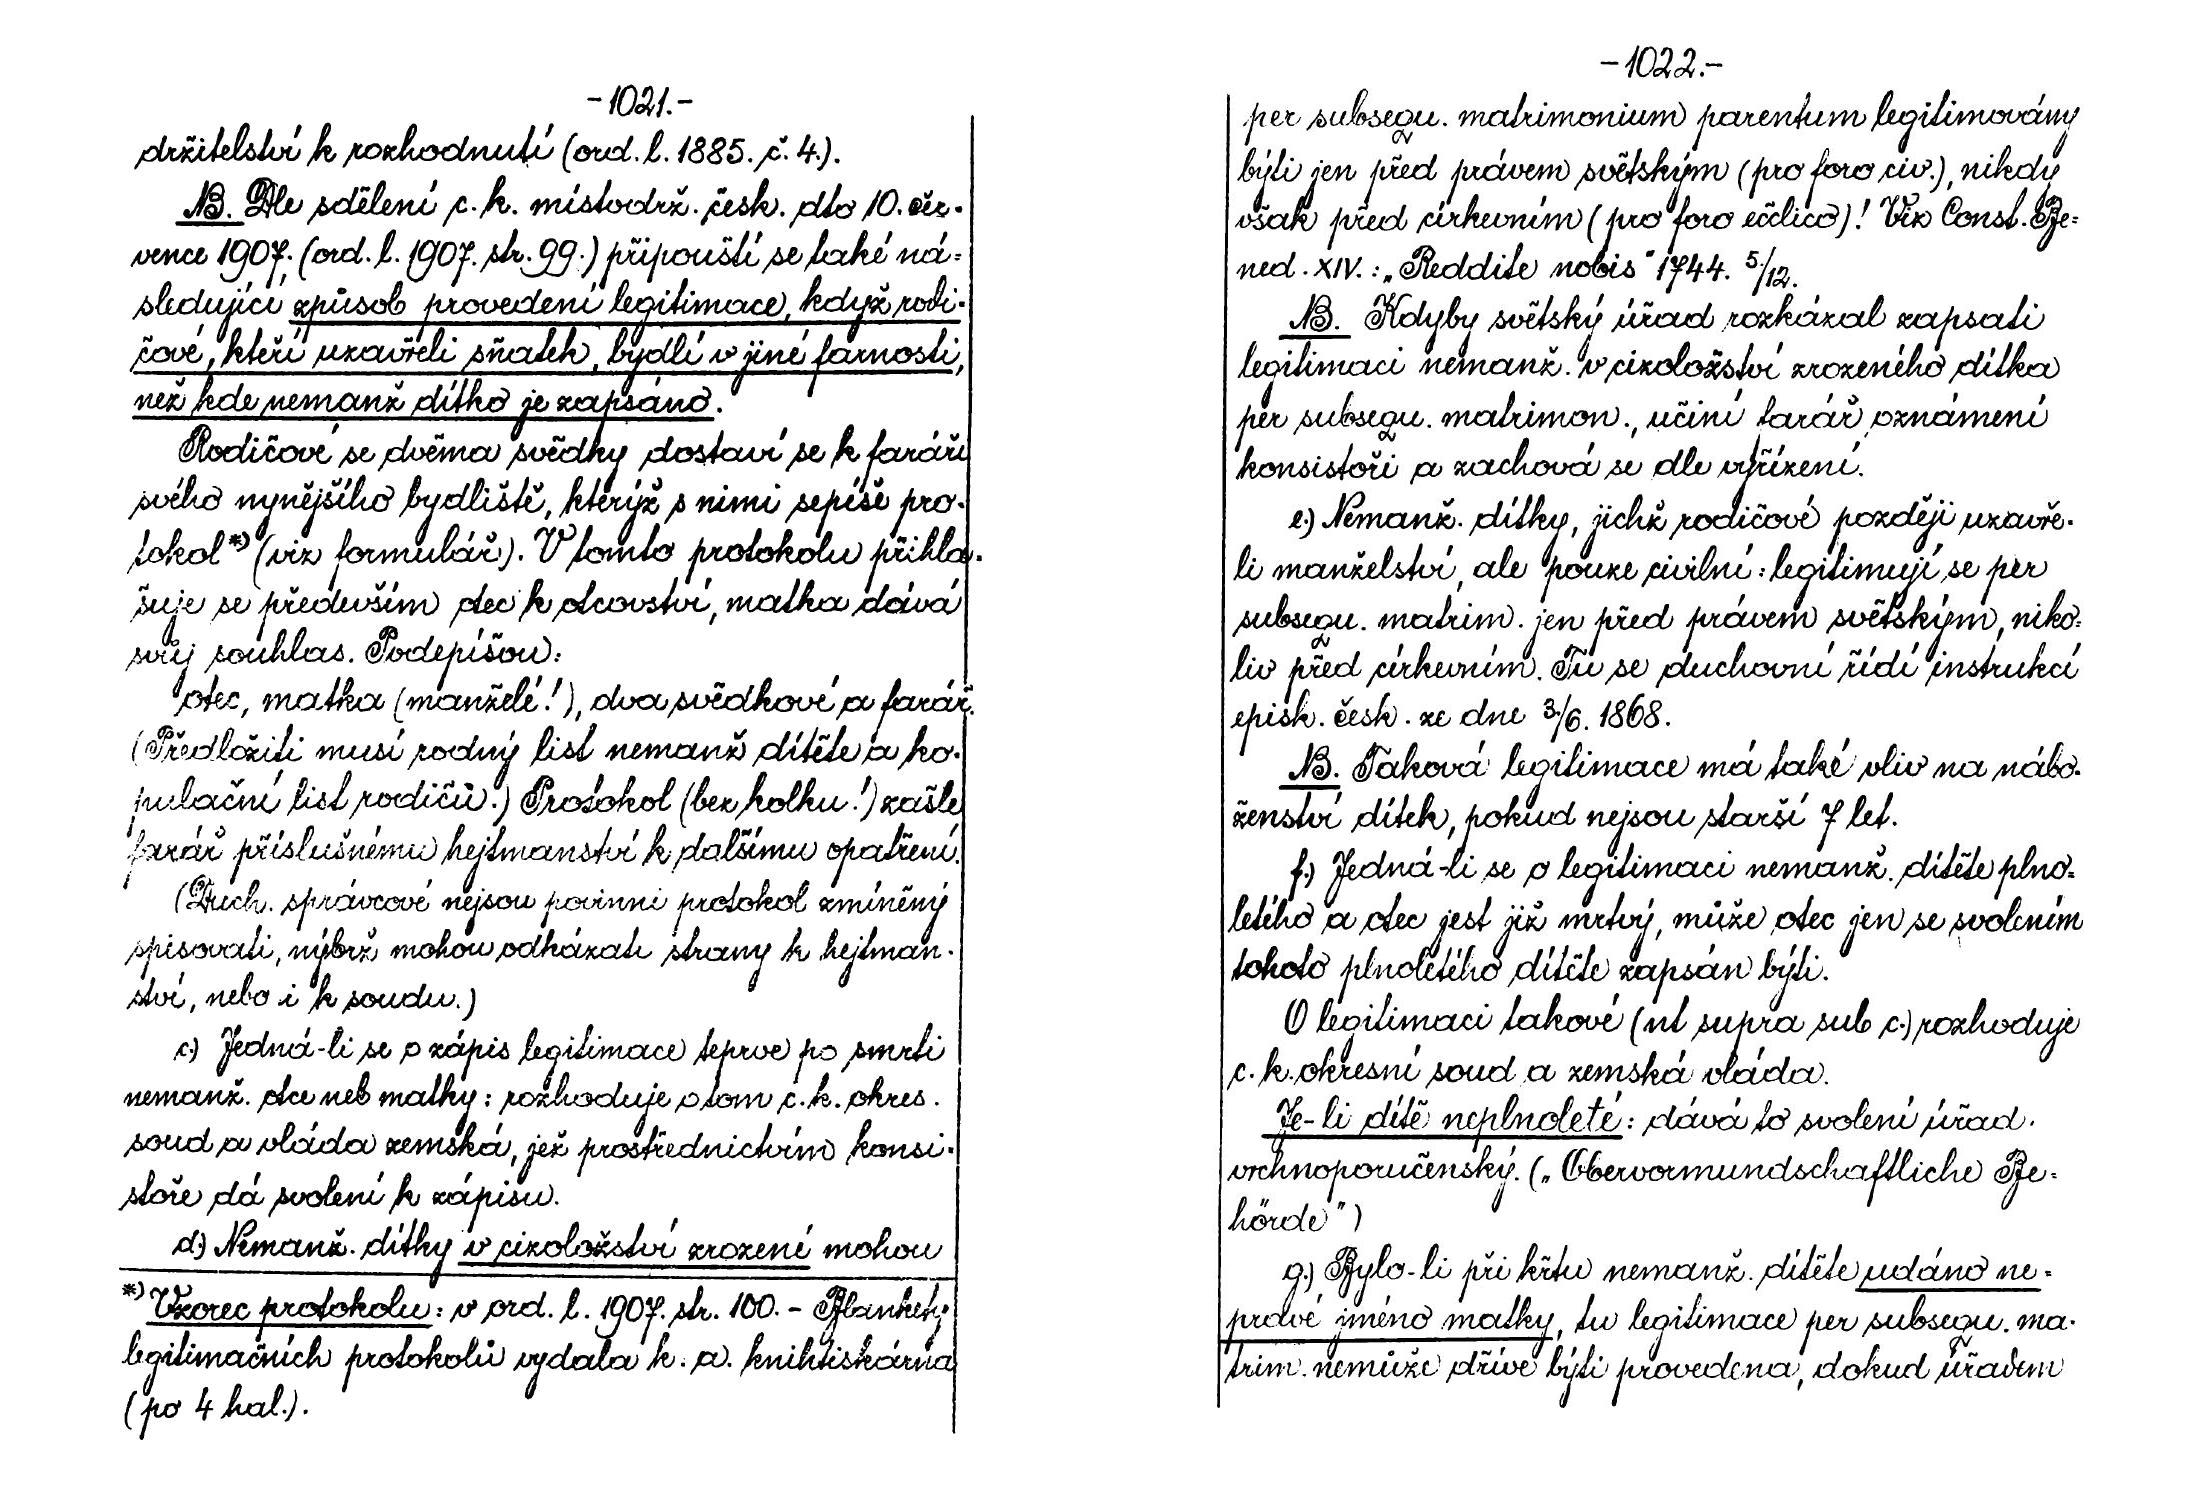 -1021.-
držitelství k rozhodnutí (ord. l. 1885. č. 4.).
NB. Dle sdělení c. k. místodrž. česk. dto 10. čer-
vence 1907. (ord. l. 1907. str. 99.) připouští se také ná=
sledující způsob provedení legitimace, když rodi-
čové, kteří uzavřeli sňatek, bydlí v jiné farnosti,
než kde nemanž dítko je zapsáno.
Rodičové se dvěma svědky dostaví se k faráři
svého nynějšího bydliště, kterýž s nimi sepíše pro-
tokol*) (viz formulář). V tomto protokolu přihla-
šuje se především otec k otcovství, matka dává
svůj souhlas. Podepíšou:
otec, matka (manželé!), dva svědkové a farář.
(Předložiti musí rodný list nemanž dítěte a ko-
pulační list rodičů.) Protokol (bez kolku!) zašle
farář příslušnému hejtmanství k dalšímu opatření.
(Duch. správcové nejsou povinni protokol zmíněný
spisovati, nýbrž mohou odkázati strany k hejtman-
ství, nebo i k soudu.)
c.) Jedná-li se o zápis legitimace teprve po smrti
nemanž. otce neb matky: rozhoduje o tom c. k. okres.
soud a vláda zemská, jež prostřednictvím konsi-
stoře dá svolení k zápisu.
d.) Nemanž. dítky v cizoložství zrozené mohou
*) Vzorec protokolu: v ord. l. 1907. str. 100. - Blankety
legitimačních protokolů vydala k. a. knihtiskárna
(po 4 hal.).
-1022.-
per subsequ. matrimonium parentum legitimovány
býti jen před právem světským (pro foro civ.), nikdy
však před církevním (pro foro ecclico)! Viz Const. Be=
ned. XIV.: „Reddite nobis" 1744. 5/12.
NB. Kdyby světský úřad rozkázal zapsati
legitimaci nemanž. v cizoložství zrozeného dítka
per subsequ. matrimon., učiní farář oznámení
konsistoři a zachová se dle vyřízení.
e.) Nemanž. dítky, jichž rodičové později uzavře-
li manželství, ale pouze civilní: legitimují se per
subsequ. matrim. jen před právem světským, niko=
liv před církevním. Tu se duchovní řídí instrukcí
episk. česk. ze dne 3./6. 1868.
NB. Taková legitimace má také vliv na nábo-
ženství dítek, pokud nejsou starší 7 let.
f.) Jedná-li se o legitimaci nemanž. dítěte plno=
letého a otec jest již mrtvý, může otec jen se svolením
tohoto plnoletého dítěte zapsán býti.
O legitimaci takové (ut supra sub c.) rozhoduje
c. k. okresní soud a zemská vláda.
Je-li dítě neplnoleté: dává to svolení úřad.
vrchnoporučenský. („Obervormundschaftliche Be=
hörde")
g.) Bylo-li při křtu nemanž. dítěte udáno ne=
pravé jméno matky, tu legitimace per subsequ. ma-
trim. nemůže dříve býti provedena, dokud úřadem